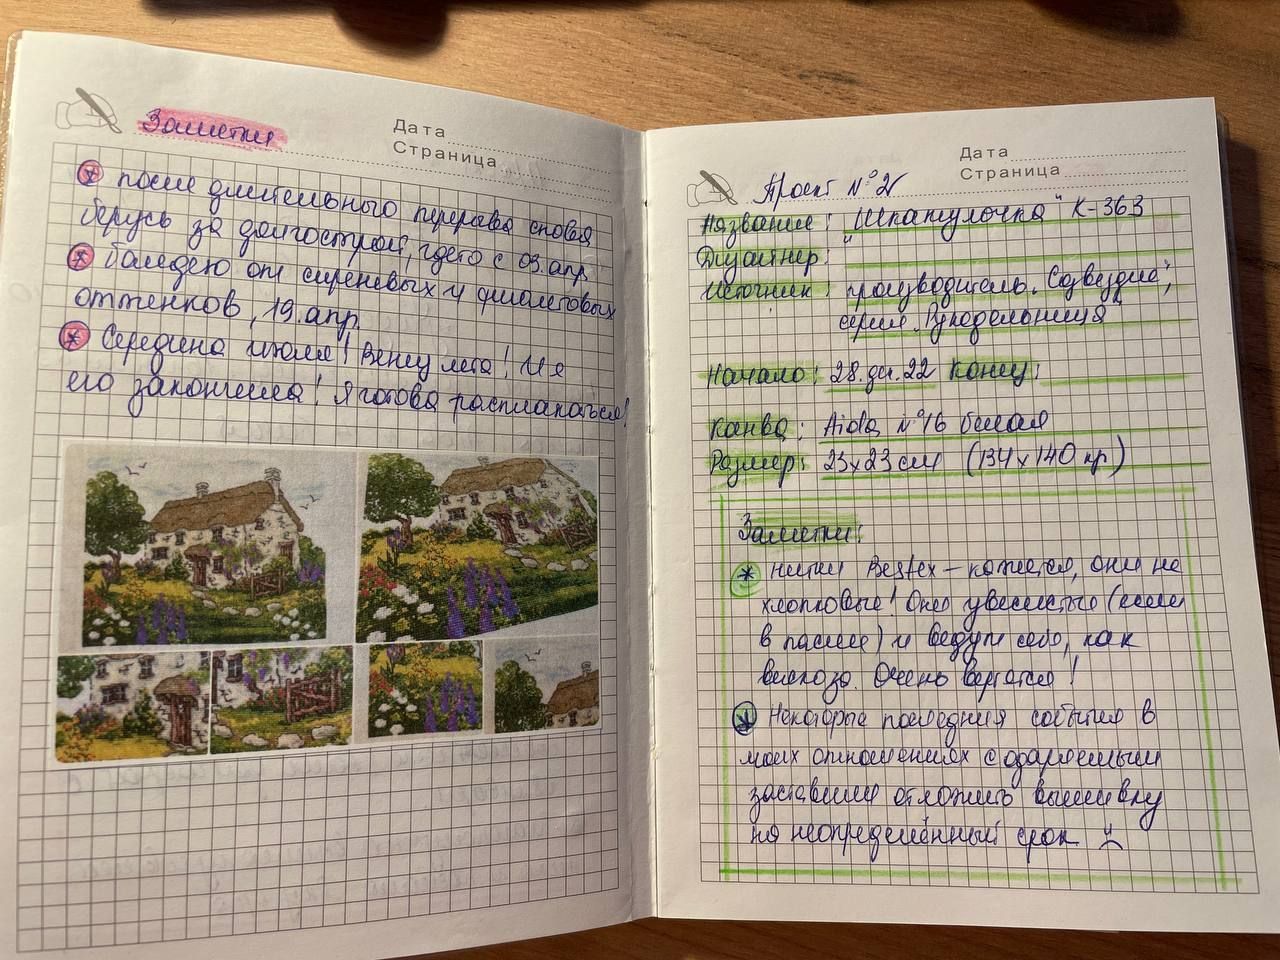 Заметки
Дата
Страница
после длительного перерыва снова
берусь за долгострой, где-то с 03.апр.
балдею от сиреневых и фиолетовых
оттенков, 19.апр.
Середина июля! Венец лета! И я
его закончила! Я готова расплакаться!
Дата
Страница
Проект №2
Название: "Шкатулочка" К-363
Дизайнер:
Источник: производитель "Созвездие",
серия "Рукодельница"
Начало: 28.дек.22 Конец:
Канва: Aida №16 белая
Размер: 23х23 см (134х140 кр)
Заметки:
нитки Bestex – кажется, они не
хлопковые! Они увесистые (если
в пасме) и ведут себя, как
вискоза. Очень вертятся!
Некоторые последние события в
моих отношениях с одаряемым
заставили отложить вышивку
на неопределённый срок